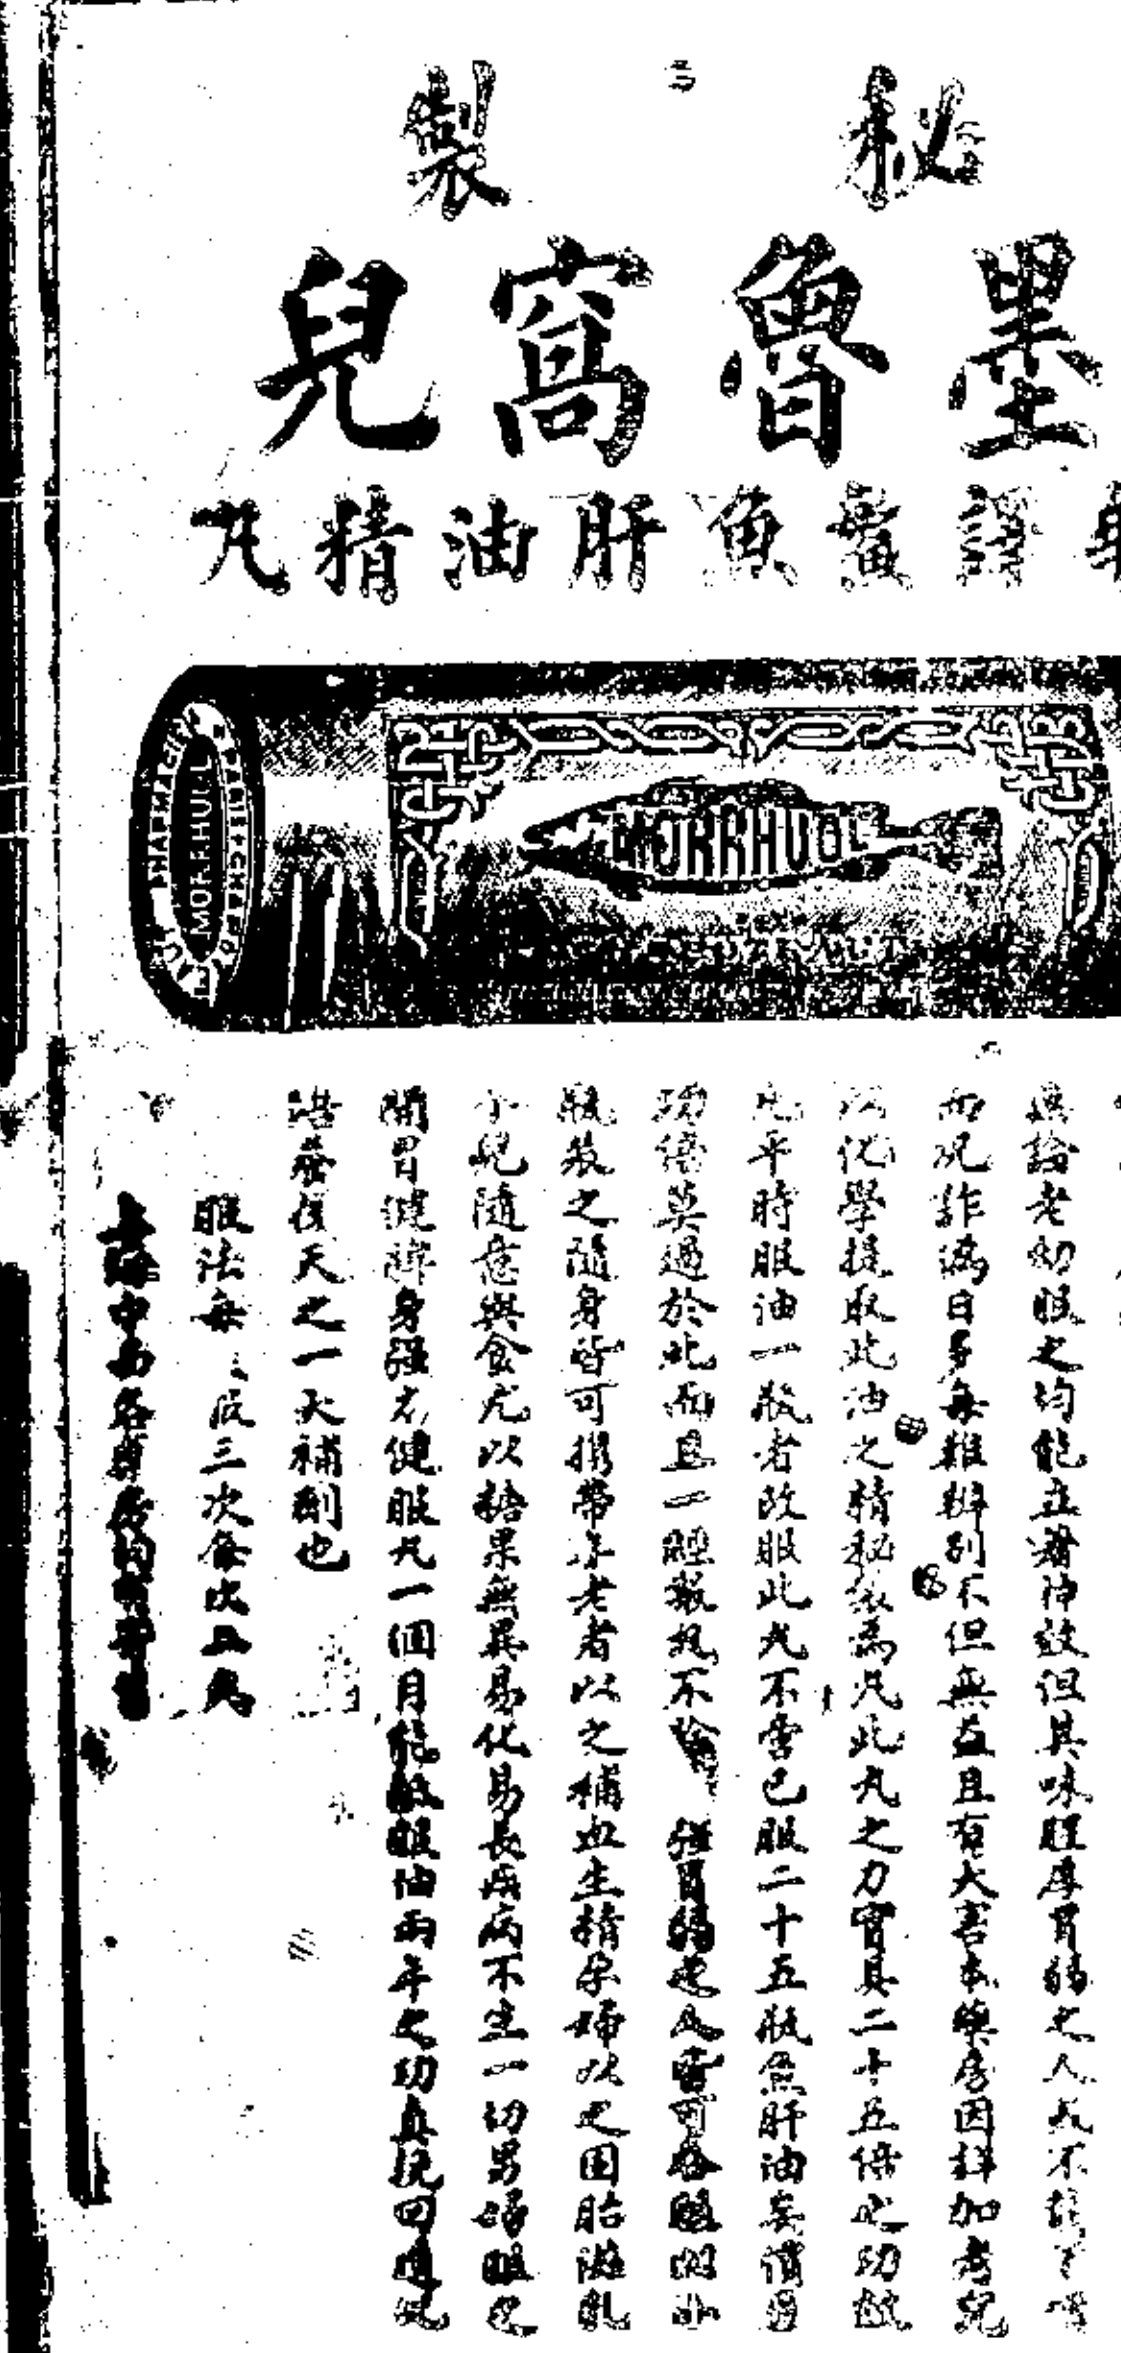 秘製
墨魯窩兒
譯鰵魚肝油精丸
MORRHUOL
MORRHUOL
論老幼服之均能立著神效但其味腥厚胃弱之人
而況詐偽日多每難辨別不但無益且有大害本藥房因詳加考究
以化學提取此油之精秘製為丸此丸之力實具二十五倍之功效
凡平時服油一瓶者改服此丸不啻已服二十五瓶魚肝油矣價
功倍莫過於此而且一經製丸不 胃弱之人皆可吞服以小
瓶裝之隨身皆可攜帶年老者以之補血生精孕婦以之固胎滋乳
小兒隨意與食尤以糖果無異易化易長疾病不生一切男婦服之
開胃健脾身強力健服丸一個月能敵服油兩年之功真挽回造化
培養後天之一大補劑也
服法每 三次每次五丸
上海中西各藥房均有